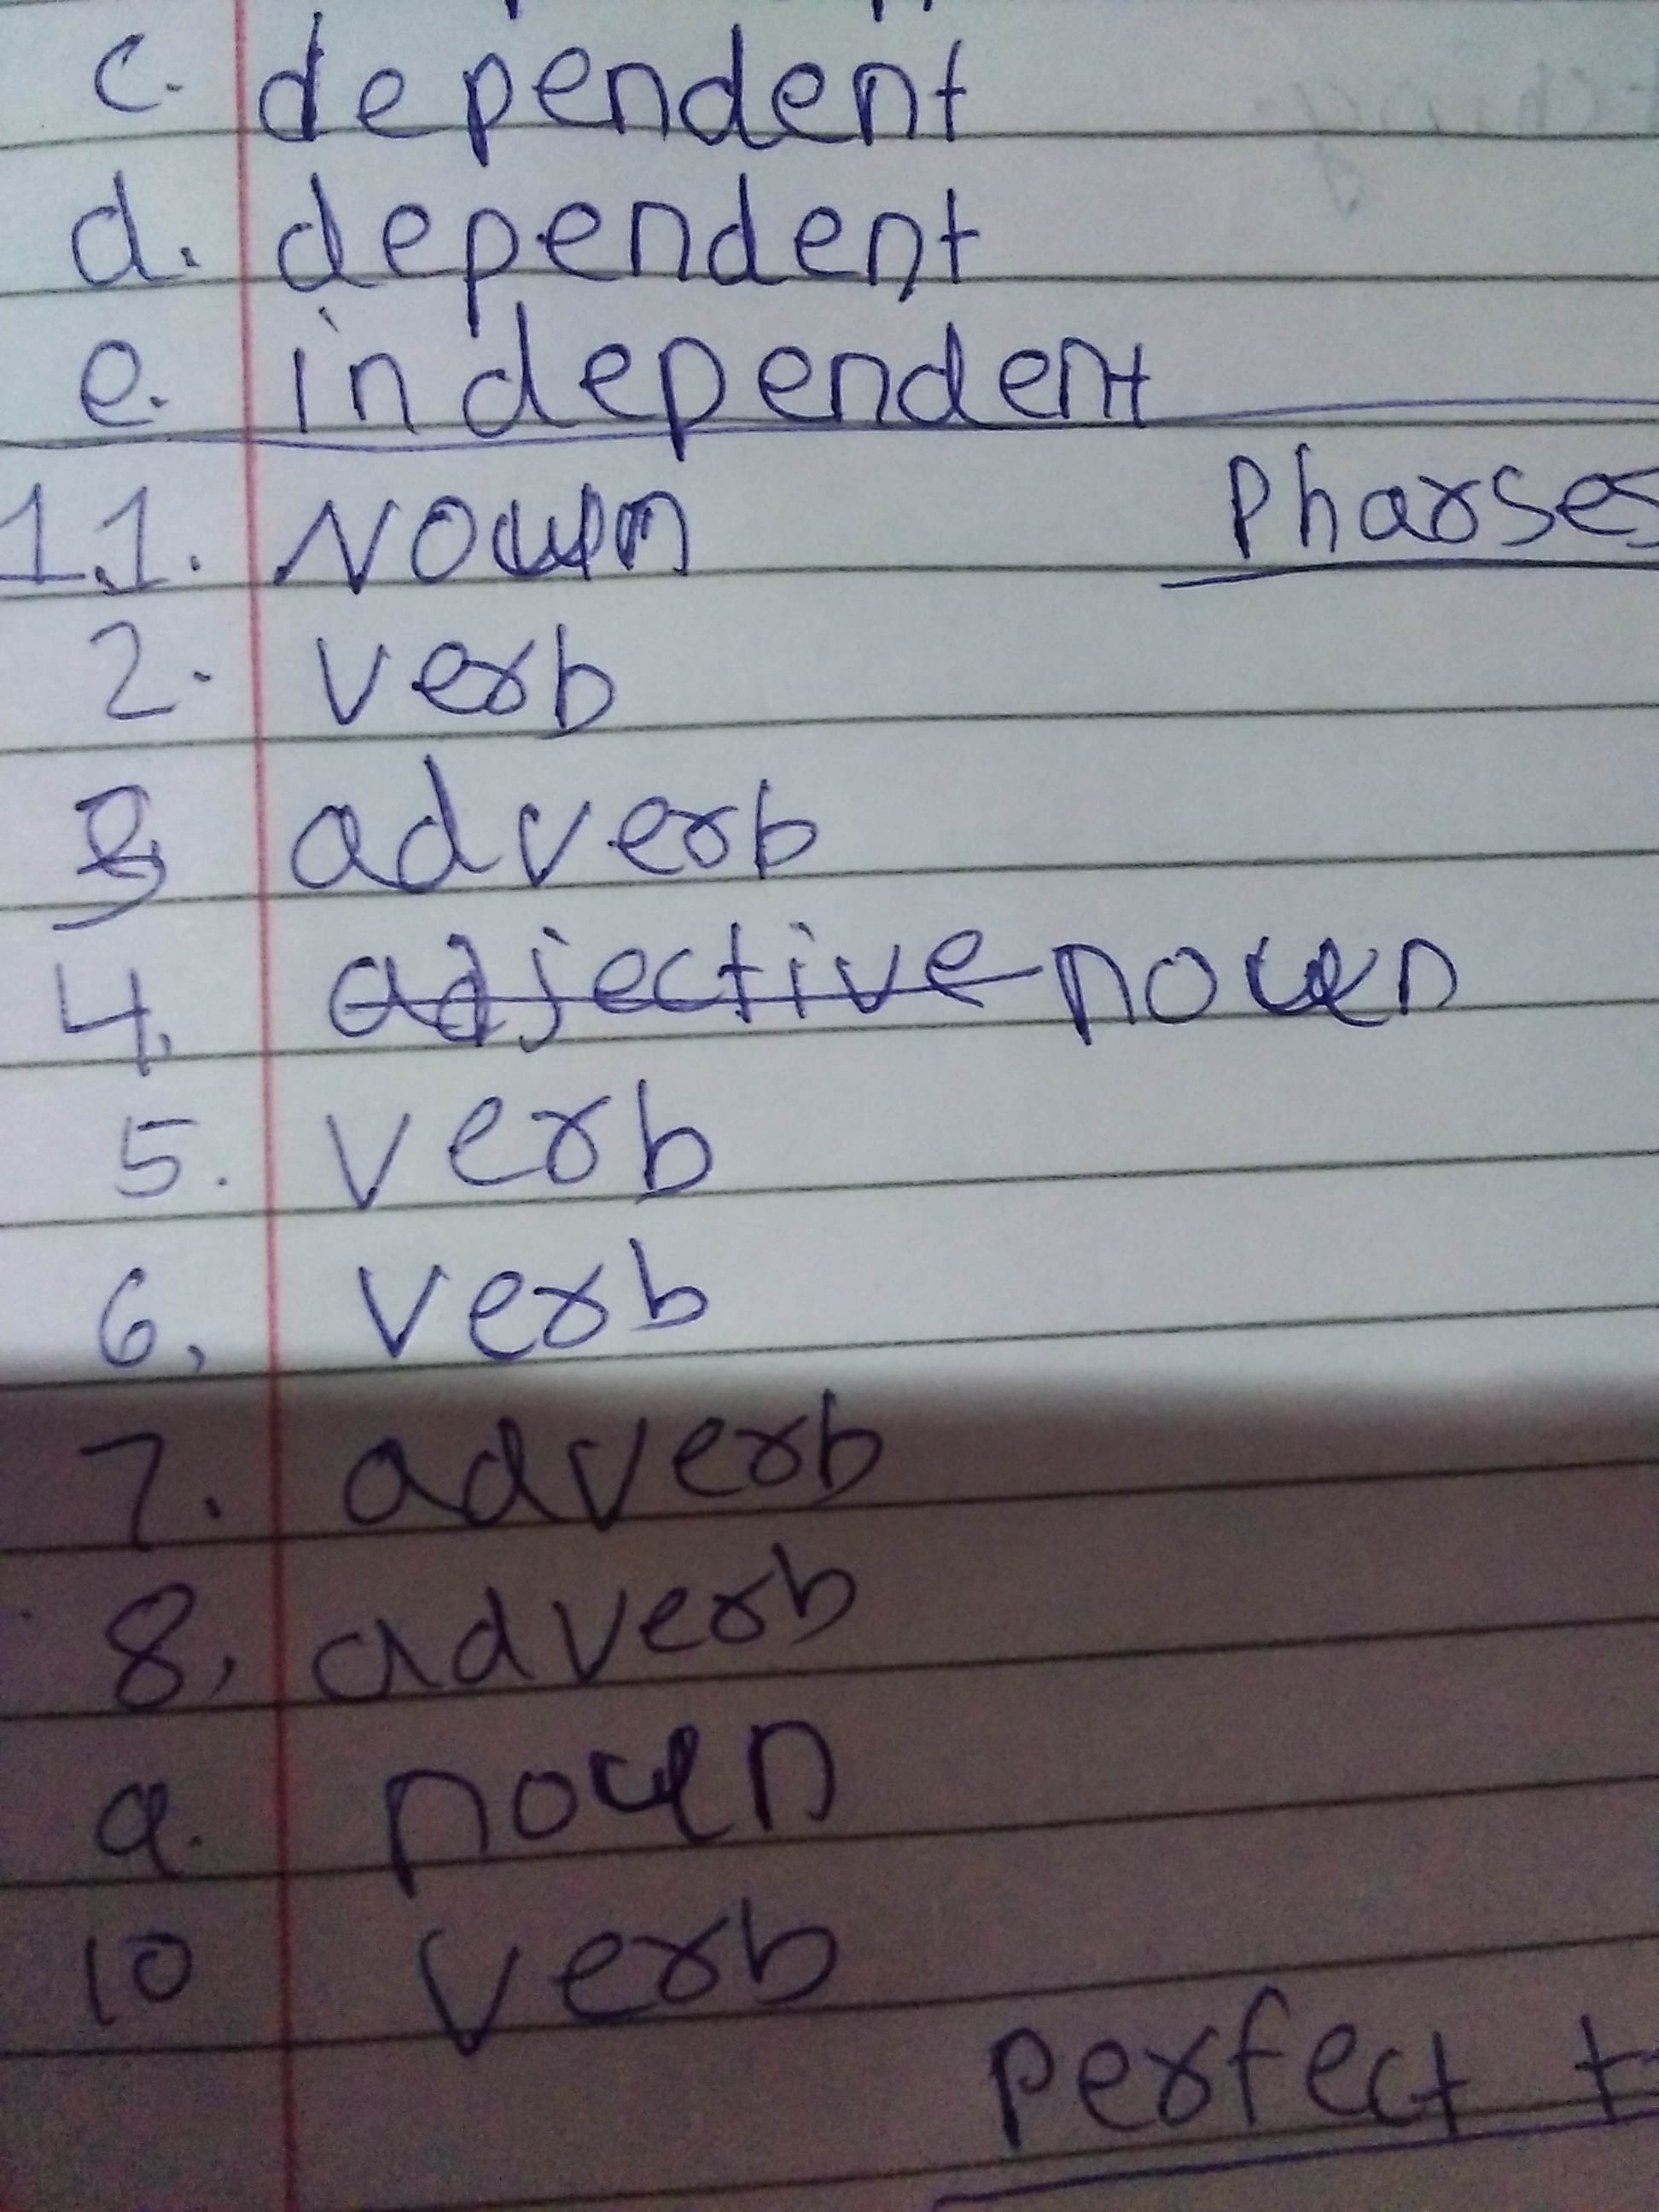 c. dependent
d. dependent
e. independent
Pharses
1.1. Noun
2. verb
3 adverb
4. adjective noun
5. verb
6. verb
7. adverb
8. adverb
9. noun
10 verb
perfect t